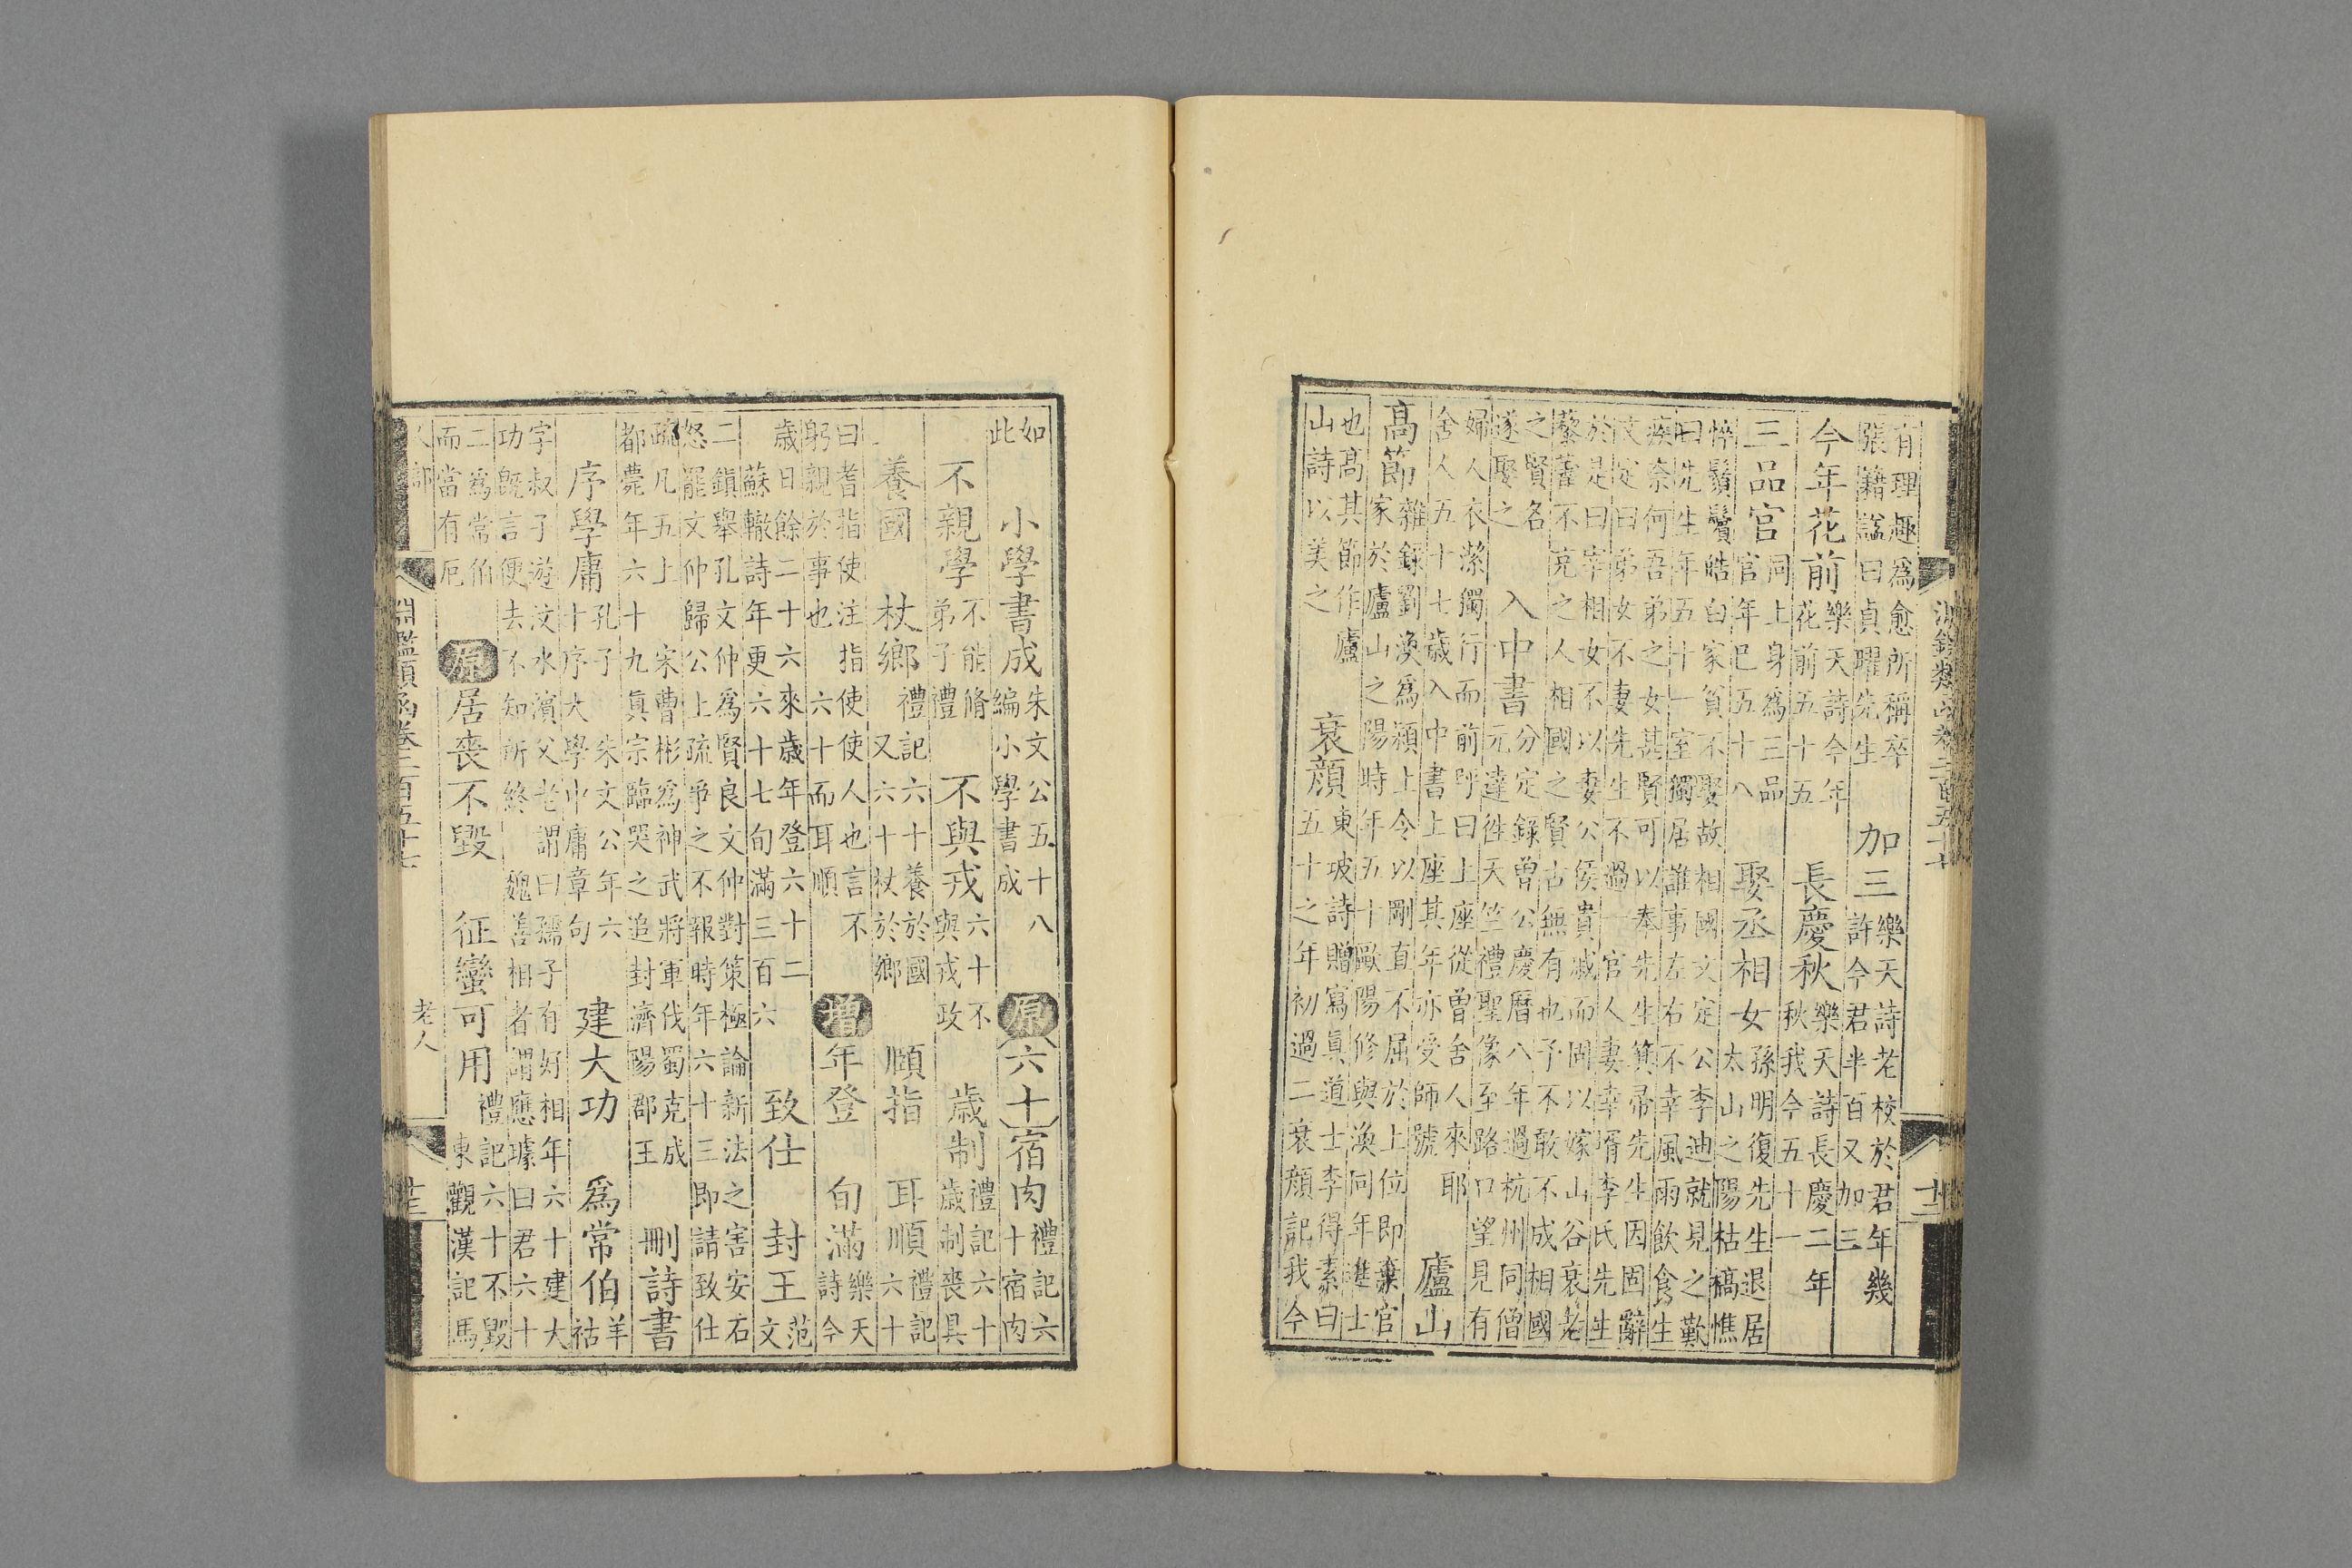 淵鑑類函卷二百五十七
有理趣爲愈所稱卒張籍諡曰貞曜先生　加三樂天詩老校於君年幾許今君半百又加三
今年花前樂天詩今年花前五十五　長慶秋樂天詩長慶二年秋我今五十一
三品官同上身爲三品官年巳五十八　娶丞相女孫明復先生退居太山之陽枯槁憔
悴鬚鬢皓白家貧不娶故相國文定公李迪就見之歎曰先生年五十一室獨居誰事左右不幸風雨飲食生
疾奈何吾弟之女甚賢可以奉先生箕帚先生因固辭文定曰弟女不妻先生不過一官人妻幸壻李氏先生
於是曰宰相女不以妻公侯貴戚而固以嫁山谷衰老藜藿不充之人相國之賢古無有也予不敢不成相國
之賢名遂娶之　入中書分定錄曾公慶曆八年過杭州同僧元達往天竺禮聖像至路口望見有
婦人衣潔獨行而前呼曰上座從曾舍人來耶舍人五十七歲入中書上座其年亦受師號　廬山
高節雜錄劉渙爲潁上令以剛直不屈於上位即棄官家於廬山之陽時年五十歐陽修與渙同年進士
也高其節作廬山詩以美之　衰顔東坡詩贈寫真道士李得素曰五十之年初過二衰顔記我今
如此　小學書成朱文公五十八編小學書成　原六十宿肉禮記六十宿肉
不親學不能脩弟子禮　不與戎六十不與戎政　歲制禮記六十歲制喪具
養國　杖鄉禮記六十養於國又六十杖於鄉　頤指　耳順禮記六十
曰耆指使注指使使人也言不躬親於事也六十而耳順　增年登　旬滿樂天詩今
歲日餘二十六來歲年登六十二蘇轍詩年更六十七旬滿三百六　致仕　封王范文
二鎮舉孔文仲爲賢良文仲對策極論新法之害安石怒罷文仲歸公上疏爭之不報時年六十三即請致仕
疏凡五上宋曹彬爲神武將軍伐蜀克成都薨年六十九真宗臨哭之追封濟陽郡王　刪詩書
序學庸孔子朱文公年六十序大學中庸章句　建大功　爲常伯羊祜
字叔子遊汶水濱父老謂曰孺子有好相年六十建大功旣言便去不知所終魏善相者謂應璩曰君六十
二爲常伯而當有厄　原居喪不毀　征蠻可用禮記六十不毀東觀漢記馬
淵鑑類函卷二百五十七　老人